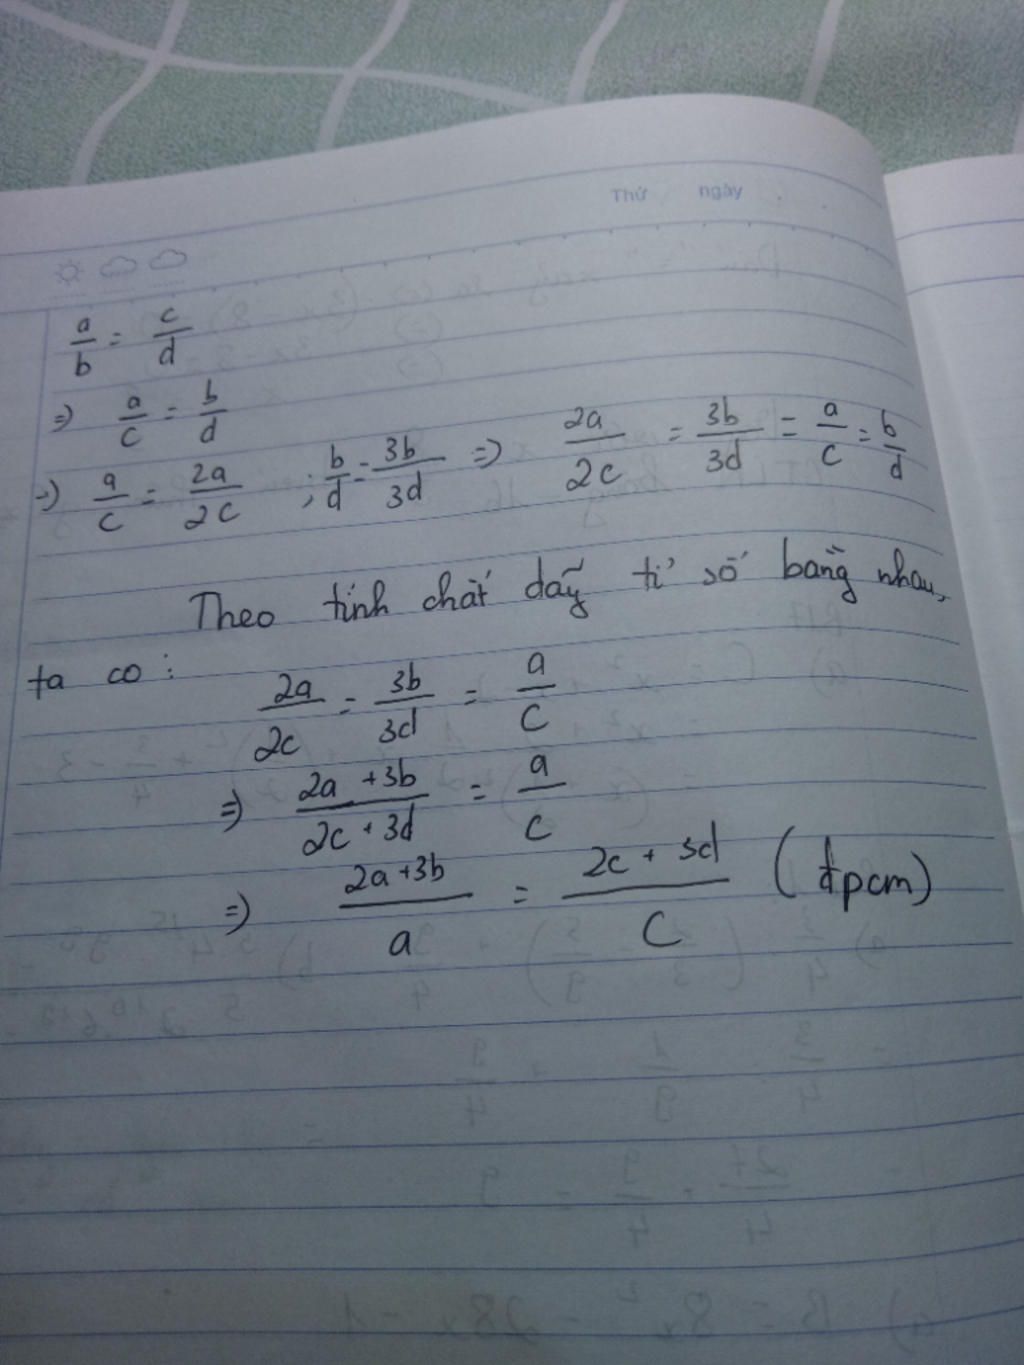 Thứ ngày
a/b = c/d
=> a/c = b/d
=> a/c = 2a/2c ; b/d = 3b/3d => 2a/2c = 3b/3d = a/c = b/d
Theo tính chất dãy tỉ số bằng nhau,
ta co:
2a/2c = 3b/3d = a/c
=> (2a + 3b)/(2c + 3d) = a/c
=> (2a + 3b)/a = (2c + 3d)/c (đpcm)